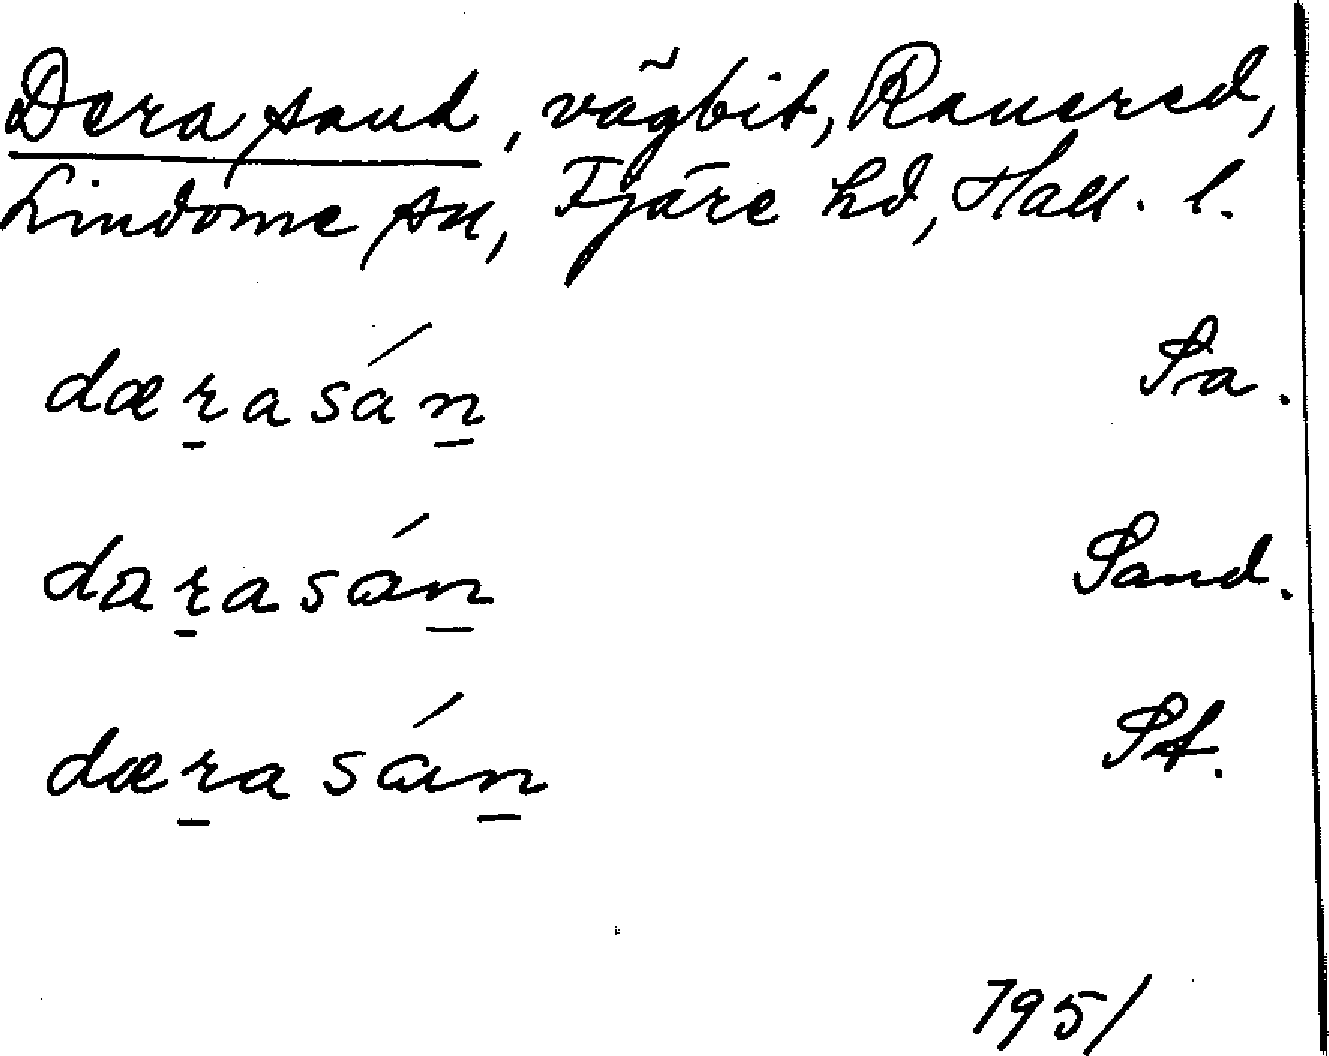 Dera sand, vägbit, Ranered,
Lindome sn, Fjäre hd, Hall. l.
dærasán Sa.
darasán Sand.
dærasán St.
1951